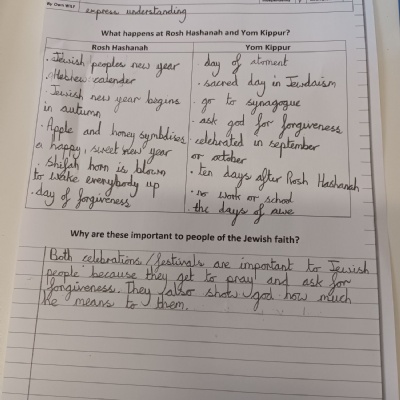 By Own Way
express understanding
What happens at Rosh Hashanah and Yom Kippur?
Rosh Hashanah
· Jewish peoples new year
· Hebrew calender
· Jewish new year begins
in autumn
· Apple and honey symbolises
a happy, sweet new year
· shifah horn is blown
to wake everybody up
· day of forgiveness
Yom Kippur
· day of atoment
· sacred day in Jewdaism
· go to synagogue
· ask god for forgiveness
· celebrated in september
or october
· ten days after Rosh Hashanah
· no work or school
the days of awe
Why are these important to people of the Jewish faith?
Both celebrations/festivals are important to Jewish
people because they get to pray and ask for
forgiveness. They also show god how much
he means to them.